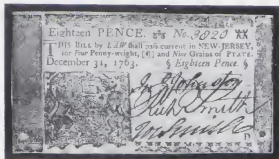 Eighteen PENCE. No. 3820
THIS BILL by LAW shall pass current in NEW-JERSEY,
for Four Penny-weight, and Nine Grains of PLATE.
December 31, 1763. § Eighteen Pence. §
Johnston
Rich Smith
Smith